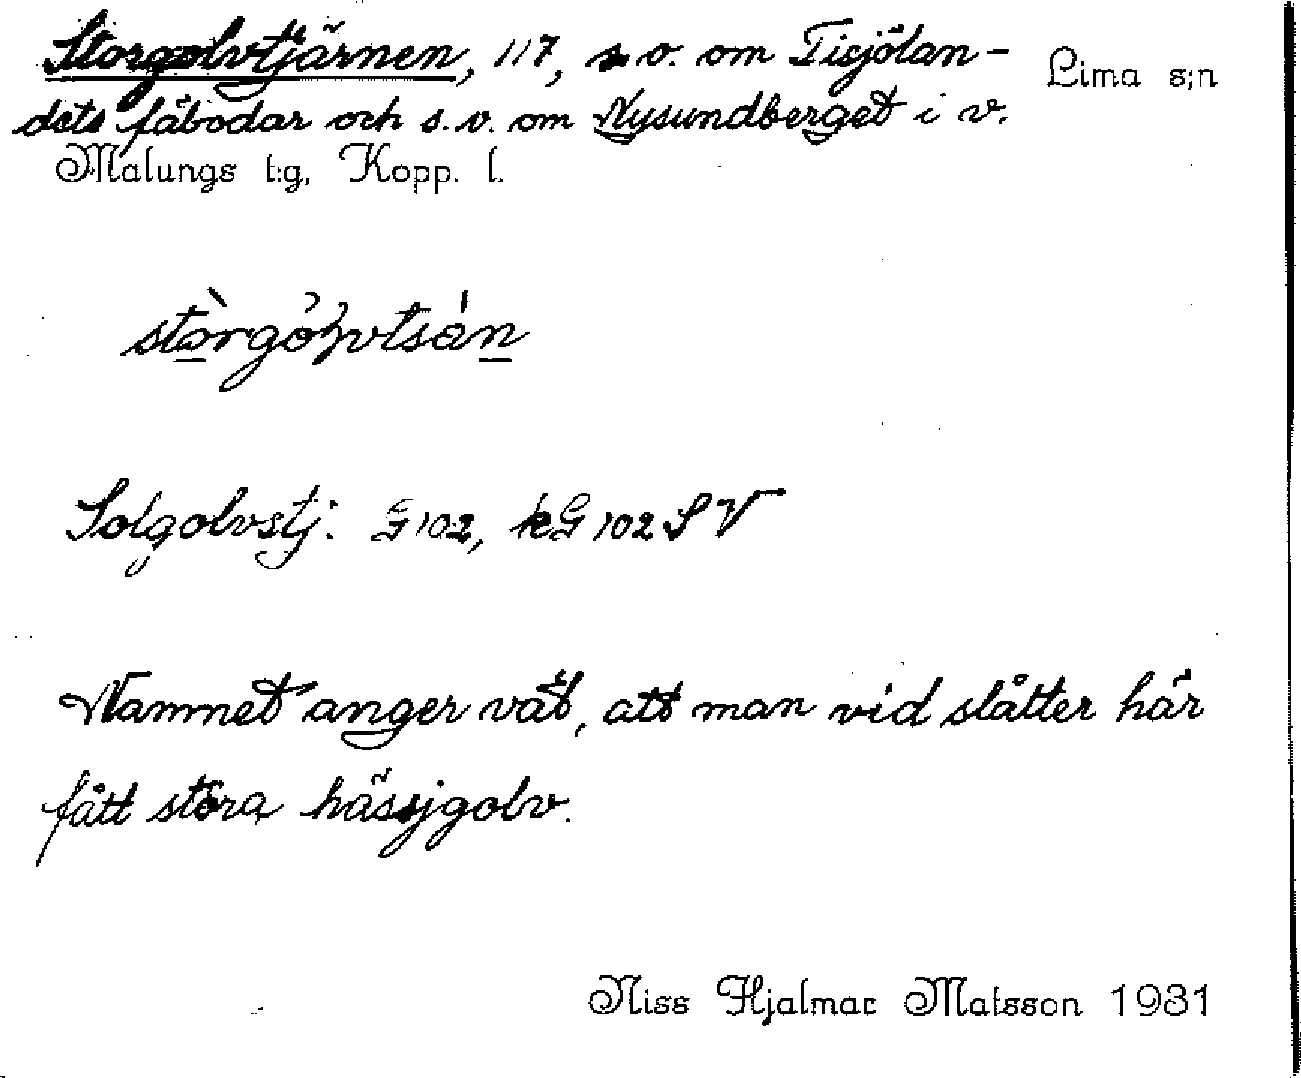 Storgolvtjärnen, 117, s.o. om Tisjölan-
Lima s:n
dets fäbodar och s.v. om Nysundberget i v.
Malungs t:g, Kopp. l.
Solgolvstj: G 102, kG 102 SV
Namnet anger väl, att man vid slåtter här
fått stora hässjgolv.
Niss Hjalmar Matsson 1931